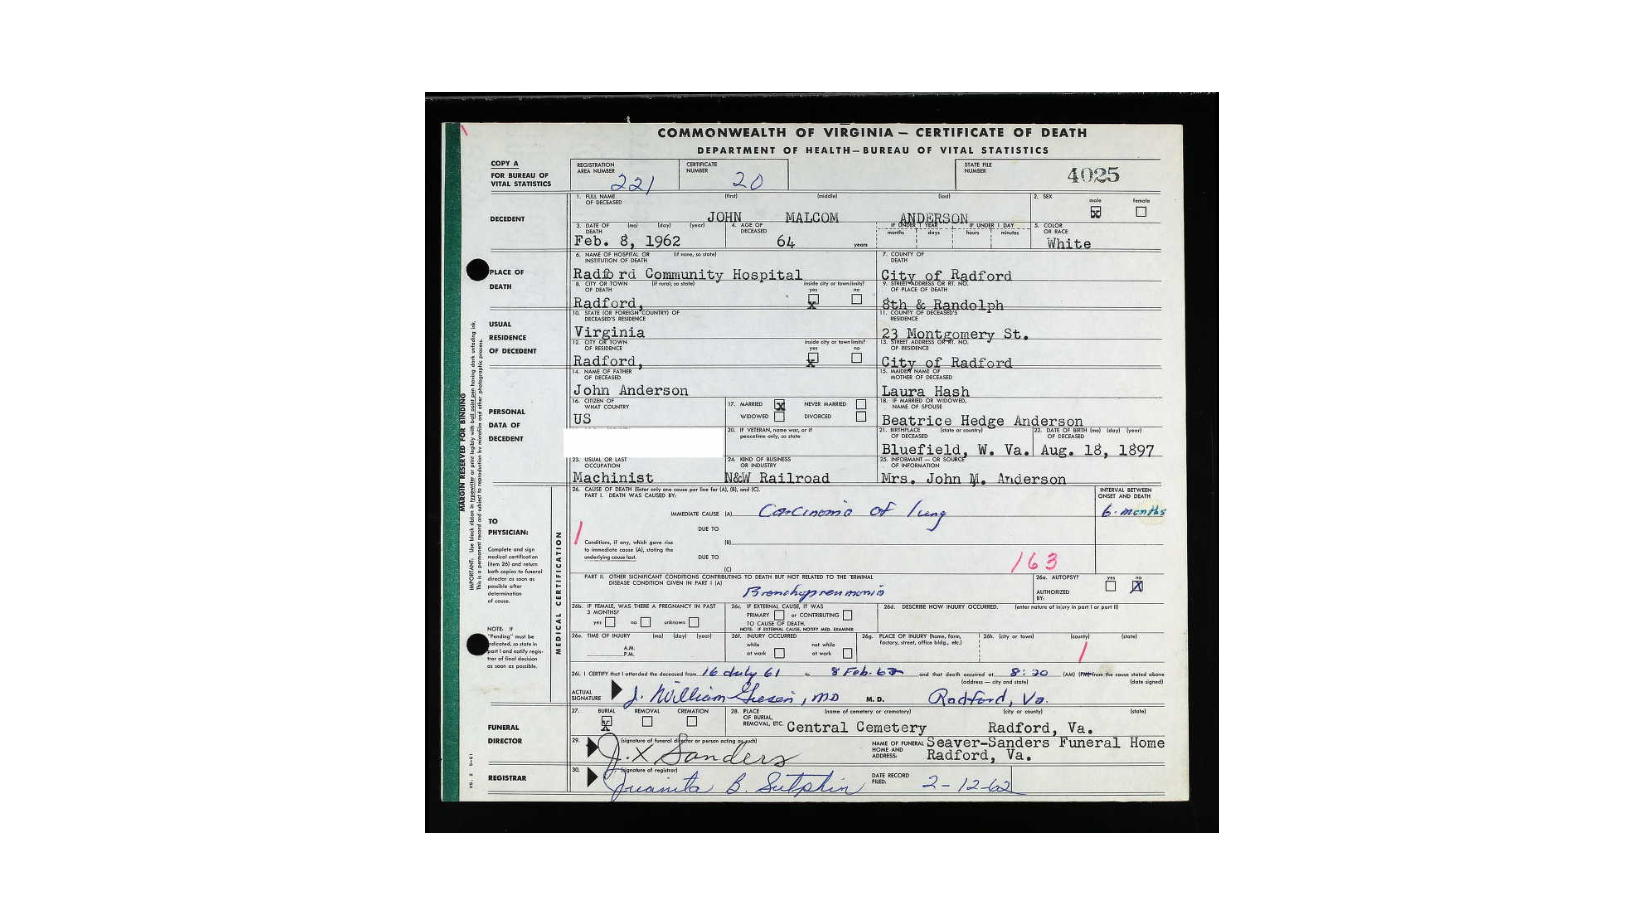 COMMONWEALTH OF VIRGINIA — CERTIFICATE OF DEATH
DEPARTMENT OF HEALTH—BUREAU OF VITAL STATISTICS
COPY A
FOR BUREAU OF
VITAL STATISTICS
REGISTRATION
AREA NUMBER 221
CERTIFICATE
NUMBER 20
STATE FILE
NUMBER 4025
DECEDENT
1. FULL NAME (first) (middle) (last)
OF DECEASED
JOHN MALCOM ANDERSON
2. SEX male female
3. DATE OF (mo) (day) (year)
DEATH
Feb. 8, 1962
4. AGE OF
DECEASED
64 years
IF UNDER 1 YEAR IF UNDER 1 DAY
months days hours minutes
5. COLOR
OR RACE
White
PLACE OF
DEATH
6. NAME OF HOSPITAL OR (if none, so state)
INSTITUTION OF DEATH
Radford Community Hospital
7. COUNTY OF
DEATH
City of Radford
8. CITY OR TOWN (if rural, so state) inside city or town limits?
OF DEATH yes no
Radford, x
9. STREET ADDRESS OR RT. NO.
OF PLACE OF DEATH
8th & Randolph
USUAL
RESIDENCE
OF DECEDENT
10. STATE (OR FOREIGN COUNTRY) OF
DECEASED'S RESIDENCE
Virginia
11. COUNTY OF DECEASED'S
RESIDENCE
23 Montgomery St.
12. CITY OR TOWN inside city or town limits?
OF RESIDENCE yes no
Radford, x
13. STREET ADDRESS OR RT. NO.
OF RESIDENCE
City of Radford
PERSONAL
DATA OF
DECEDENT
14. NAME OF FATHER
OF DECEASED
John Anderson
15. MAIDEN NAME OF
MOTHER OF DECEASED
Laura Hash
16. CITIZEN OF
WHAT COUNTRY
US
17. MARRIED x NEVER MARRIED
WIDOWED DIVORCED
18. IF MARRIED OR WIDOWED,
NAME OF SPOUSE
Beatrice Hedge Anderson
20. IF VETERAN, name war, or if
peacetime only, so state
21. BIRTHPLACE (state or country)
OF DECEASED
Bluefield, W. Va.
22. DATE OF BIRTH (mo) (day) (year)
OF DECEASED
Aug. 18, 1897
23. USUAL OR LAST
OCCUPATION
Machinist
24. KIND OF BUSINESS
OR INDUSTRY
N&W Railroad
25. INFORMANT — OR SOURCE
OF INFORMATION
Mrs. John M. Anderson
MARGIN RESERVED FOR BINDING
TO
PHYSICIAN:
Complete and sign
medical certification
(item 26) and return
both copies to funeral
director as soon as
possible after
determination
of cause.
NOTE: IF
"Pending" must be
indicated, so state in
part I and notify regis-
trar of final decision
as soon as possible.
MEDICAL CERTIFICATION
26. CAUSE OF DEATH (Enter only one cause per line for (A), (B), and (C).
PART I. DEATH WAS CAUSED BY:
INTERVAL BETWEEN
ONSET AND DEATH
IMMEDIATE CAUSE (A) Carcinoma of lung 6 months
DUE TO
Conditions, if any, which gave rise (B)
to immediate cause (A), stating the
underlying cause last. DUE TO
(C)
163
PART II. OTHER SIGNIFICANT CONDITIONS CONTRIBUTING TO DEATH BUT NOT RELATED TO THE TERMINAL
DISEASE CONDITION GIVEN IN PART I (A)
Bronchopneumonia
26a. AUTOPSY? yes no
AUTHORIZED
BY:
26b. IF FEMALE, WAS THERE A PREGNANCY IN PAST
3 MONTHS?
yes no unknown
26c. IF EXTERNAL CAUSE, IT WAS
PRIMARY or CONTRIBUTING
TO CAUSE OF DEATH.
NOTE: IF EXTERNAL CAUSE, NOTIFY MED. EXAMINER
26d. DESCRIBE HOW INJURY OCCURRED. (enter nature of injury in part I or part II)
26e. TIME OF INJURY (mo) (day) (year)
A.M.
P.M.
26f. INJURY OCCURRED
while not while
at work at work
26g. PLACE OF INJURY (home, farm,
factory, street, office bldg., etc.)
26h. (city or town) (county) (state)
26i. I CERTIFY that I attended the deceased from 16 July 61 to 8 Feb. 62 and that death occurred at 8:20 (AM) (PM) from the cause stated above
(address — city and state) (date signed)
ACTUAL
SIGNATURE J. William Giesen, MD M. D. Radford, Va.
FUNERAL
DIRECTOR
27. BURIAL REMOVAL CREMATION
28. PLACE (name of cemetery or crematory) (city or county) (state)
OF BURIAL,
REMOVAL, ETC. Central Cemetery Radford, Va.
29. (signature of funeral director or person acting as such)
J. X Sanders
NAME OF FUNERAL
HOME AND
ADDRESS: Seaver-Sanders Funeral Home
Radford, Va.
REGISTRAR
30. (signature of registrar)
Juanita B. Sutphin
DATE RECORD
FILED: 2-12-62